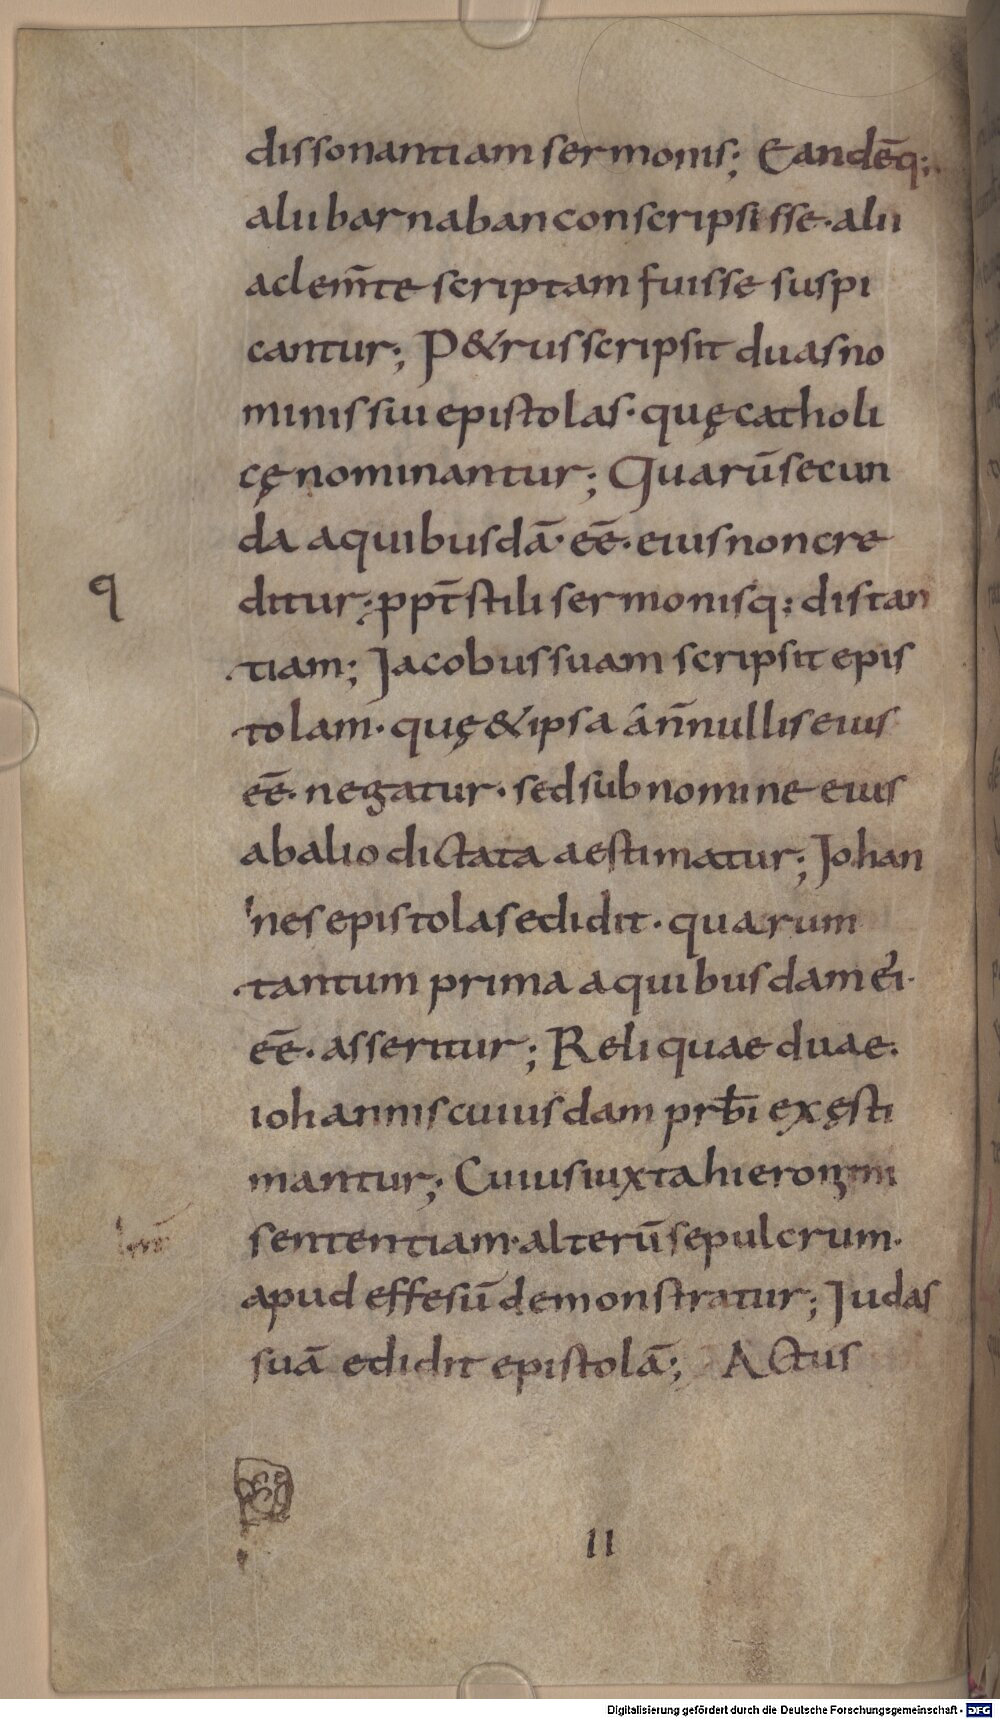 dissonantiam sermonis; Eandēq;
alii barnaban conscripsisse· alii
a clem̄te scriptam fuisse suspi
cantur; P&rus scripsit duas no
minis sui epistolas· quę catholi
cę nominantur; Quarū secun
da a quibusdā· eē· eius non cre
ditur; ppt̄ stili sermonisq; distan
tiam; Jacobus suam scripsit epis
tolam· quę & ipsa a n̄nullis eius
eē· negatur· sed sub nomine eius
ab alio dictata aestimatur; Johan
nes epistolas edidit· quarum
tantum prima a quibusdam ei·
eē· asseritur; Reliquae duae·
iohannis cuiusdam prb̄i exęsti
mantur; Cuius iuxta hieronimi
sententiam· alterū sepulcrum·
apud effesū demonstratur; Judas
suā edidit epistolā; Actus
q
II
Digitalisierung gefördert durch die Deutsche Forschungsgemeinschaft - DFG